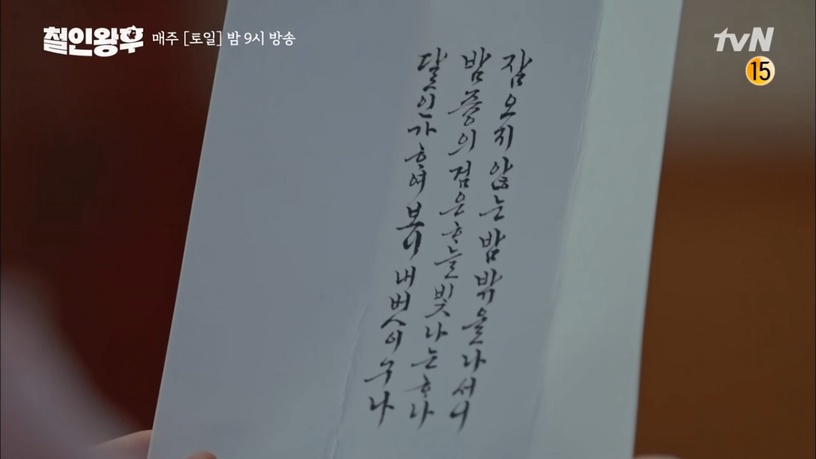 철인왕후 매주 [토일] 밤 9시 방송
tvN
15
잠 오지 않는 밤 밖을 나서니
밤 중의 검은 ᄒᆞ늘 빛나는 ᄒᆞ나
달인가 ᄒᆞ여 보니 내 벗이구나